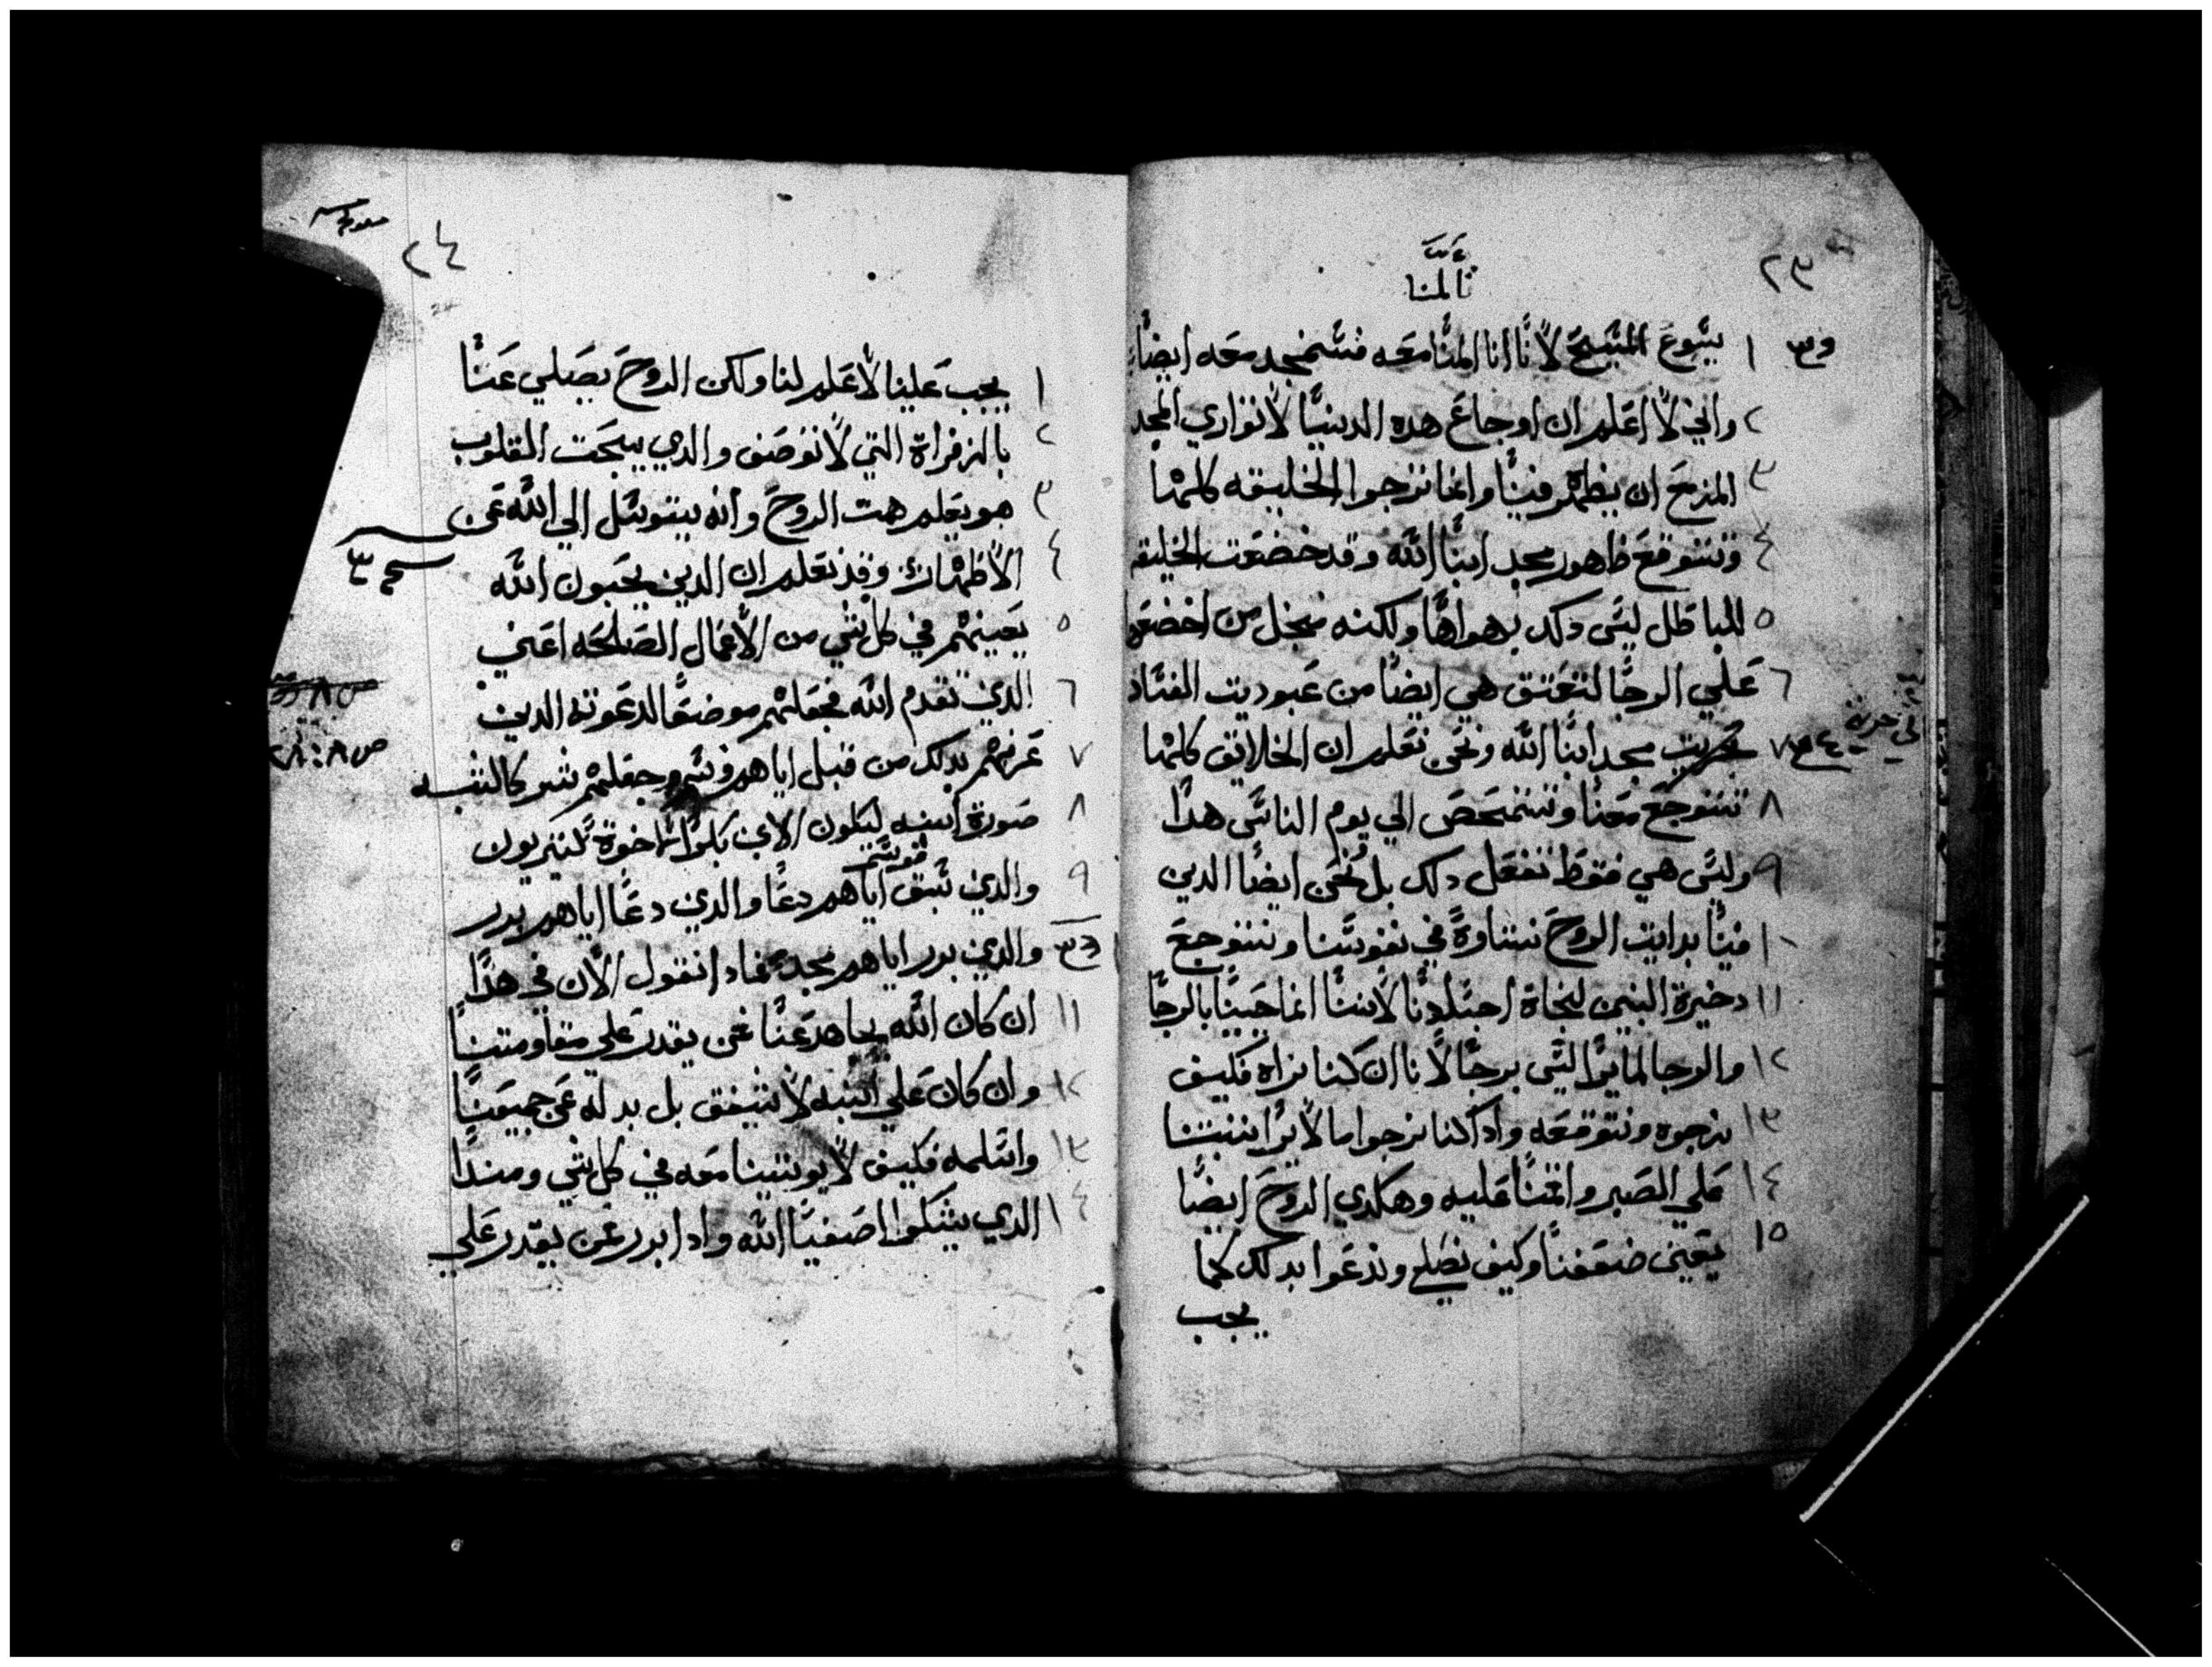 ٢٣
تألمنا
١ يسوع المسيح لاننا اذا المنا معه فسنمجد معه ايضا
٢ واني لا اعلم ان اوجاع هده الدنيا لا توازي المجد
٣ المزمع ان يظهر فينا وانما نرجوا الخليقه كلها
٤ وتتوقع ظهور مجد ابنا الله وقد خضعت الخليقه
٥ للباطل ليس دلك بهواها ولكنه من اجل من اخضعها
٦ علي الرجا لتعتق هي ايضا من عبوديت الفساد
٧ مجد ابنا الله ونحن نعلم ان الخلايق كلها
٨ تتوجع معنا وتتمخص الي يوم الناس هدا
٩ وليس هي فقط تفعل دلك بل نحن ايضا الدين
١٠ فينا بدايت الروح نتاوه في نفوسنا ونتوجع
١١ دخيرة البنين لنجاة اجسادنا لاننا انما حيينا بالرجا
١٢ والرجا لما يرا ليس برجا لانا ان كنا نراه فكيف
١٣ نرجوه ونتوقعه وادا كنا نرجوا ما لا يرا ثبتنا
١٤ علي الصبر واقمنا عليه وهكدي الروح ايضا
١٥ يعين ضعفنا وكيف نصلي وندعوا بدلك كما
يجب
٢٤
١ يجب علينا لا علم لنا ولكن الروح يصلي عنا
٢ بالزفراة التي لا توصف والدي يبحت القلوب
٣ هو يعلم همت الروح وانه يتوسل الي الله عن
٤ الاطهار وقد نعلم ان الدين يحبون الله
٥ يعينهم في كل شي من الاعمال الصالحه اعني
٦ الدين تقدم الله فجعلهم موضعا لدعوته الدين
٧ عرفهم بدلك من قبل اياهم وسم وجعلهم شركا لشبه
٨ صورة ابنه ليكون الابن بكرا لاخوة كتيريون
٩ والدين سبق اياهم دعا والدي دعا اياهم برر
والدين برر اياهم مجد فمادا نقول الان في هدا
١١ ان كان الله يجاهد عنا فمن يقدر علي مقاومتنا
١٢ وان كان علي ابنه لا يشفق بل بدله عن جميعنا
١٣ واسلمه فكيف لا يوتينا معه في كل شي ومندا
١٤ الدي يشكوا اصفيا الله وادا برر فمن يقدر علي
ص ٨ : ٢٨